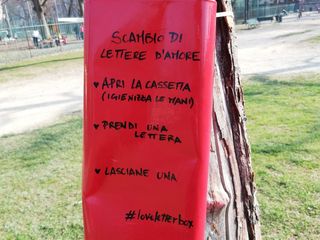 SCAMBIO DI
LETTERE D'AMORE
♥ APRI LA CASSETTA
(IGIENIZZA LE MANI)
♥ PRENDI UNA
LETTERA
♥ LASCIANE UNA
#loveletterbox